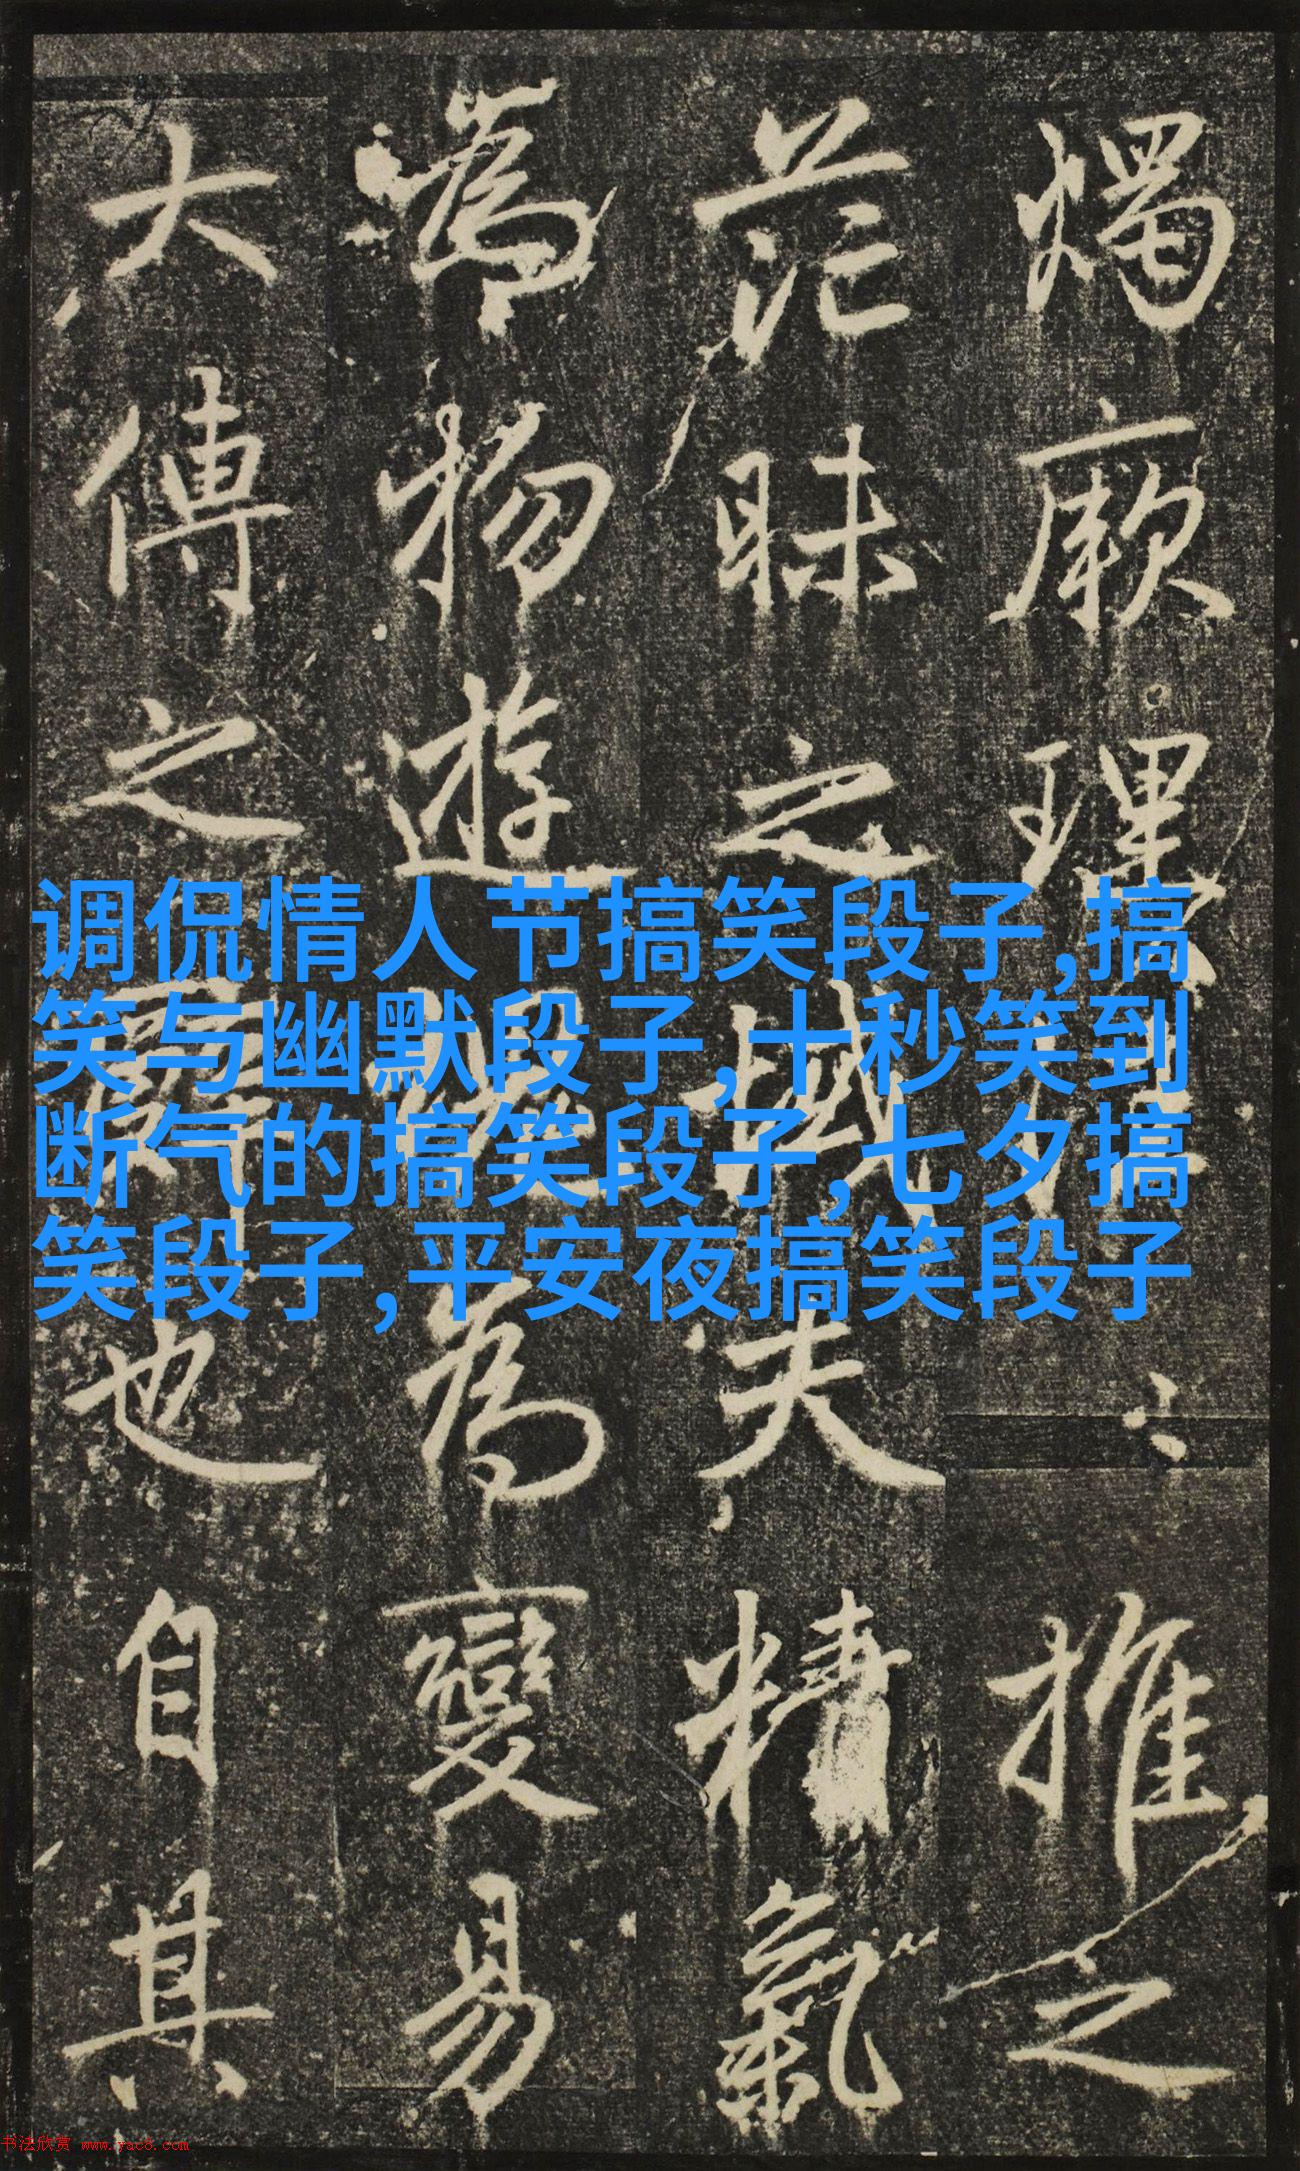 燭厥理
推之
茫昧之域夫精氣
為物遊為變易
大傳之辭也自其
调侃情人节搞笑段子,搞
笑与幽默段子,十秒笑到
断气的搞笑段子,七夕搞
笑段子,平安夜搞笑段子
书法欣赏 www.yac8.com